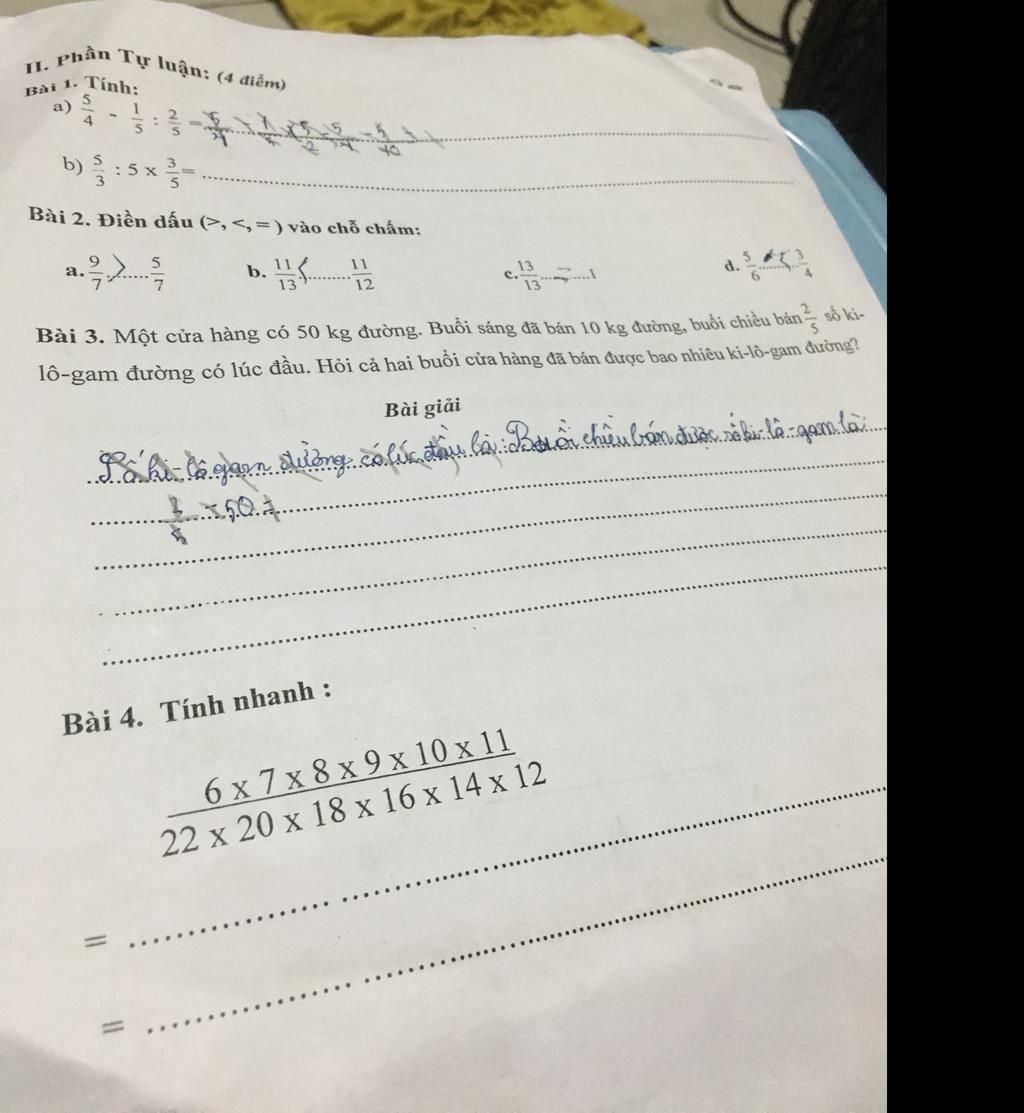 II. Phần Tự luận: (4 điểm)
Bài 1. Tính:
a) 5/4 - 1/5 : 2/5 =
b) 5/3 : 5 x 3/5 = ........
Bài 2. Điền dấu (>, <, = ) vào chỗ chấm:
a. 9/7 ..>.... 5/7 b. 11/13 <......... 11/12 c. 13/13 ....=.....1 d. 5/6 ........ 3/4
Bài 3. Một cửa hàng có 50 kg đường. Buổi sáng đã bán 10 kg đường, buổi chiều bán 2/5 số ki-
lô-gam đường có lúc đầu. Hỏi cả hai buổi cửa hàng đã bán được bao nhiêu ki-lô-gam đường?
Bài giải
Số ki-lô gam đường có lúc đầu là: Buổi chiều bán được số ki-lô-gam là:
x 50 =
Bài 4. Tính nhanh :
6 x 7 x 8 x 9 x 10 x 11
22 x 20 x 18 x 16 x 14 x 12
= ........
= ........